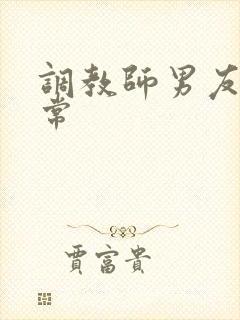 調教師男友
常
賈富貴